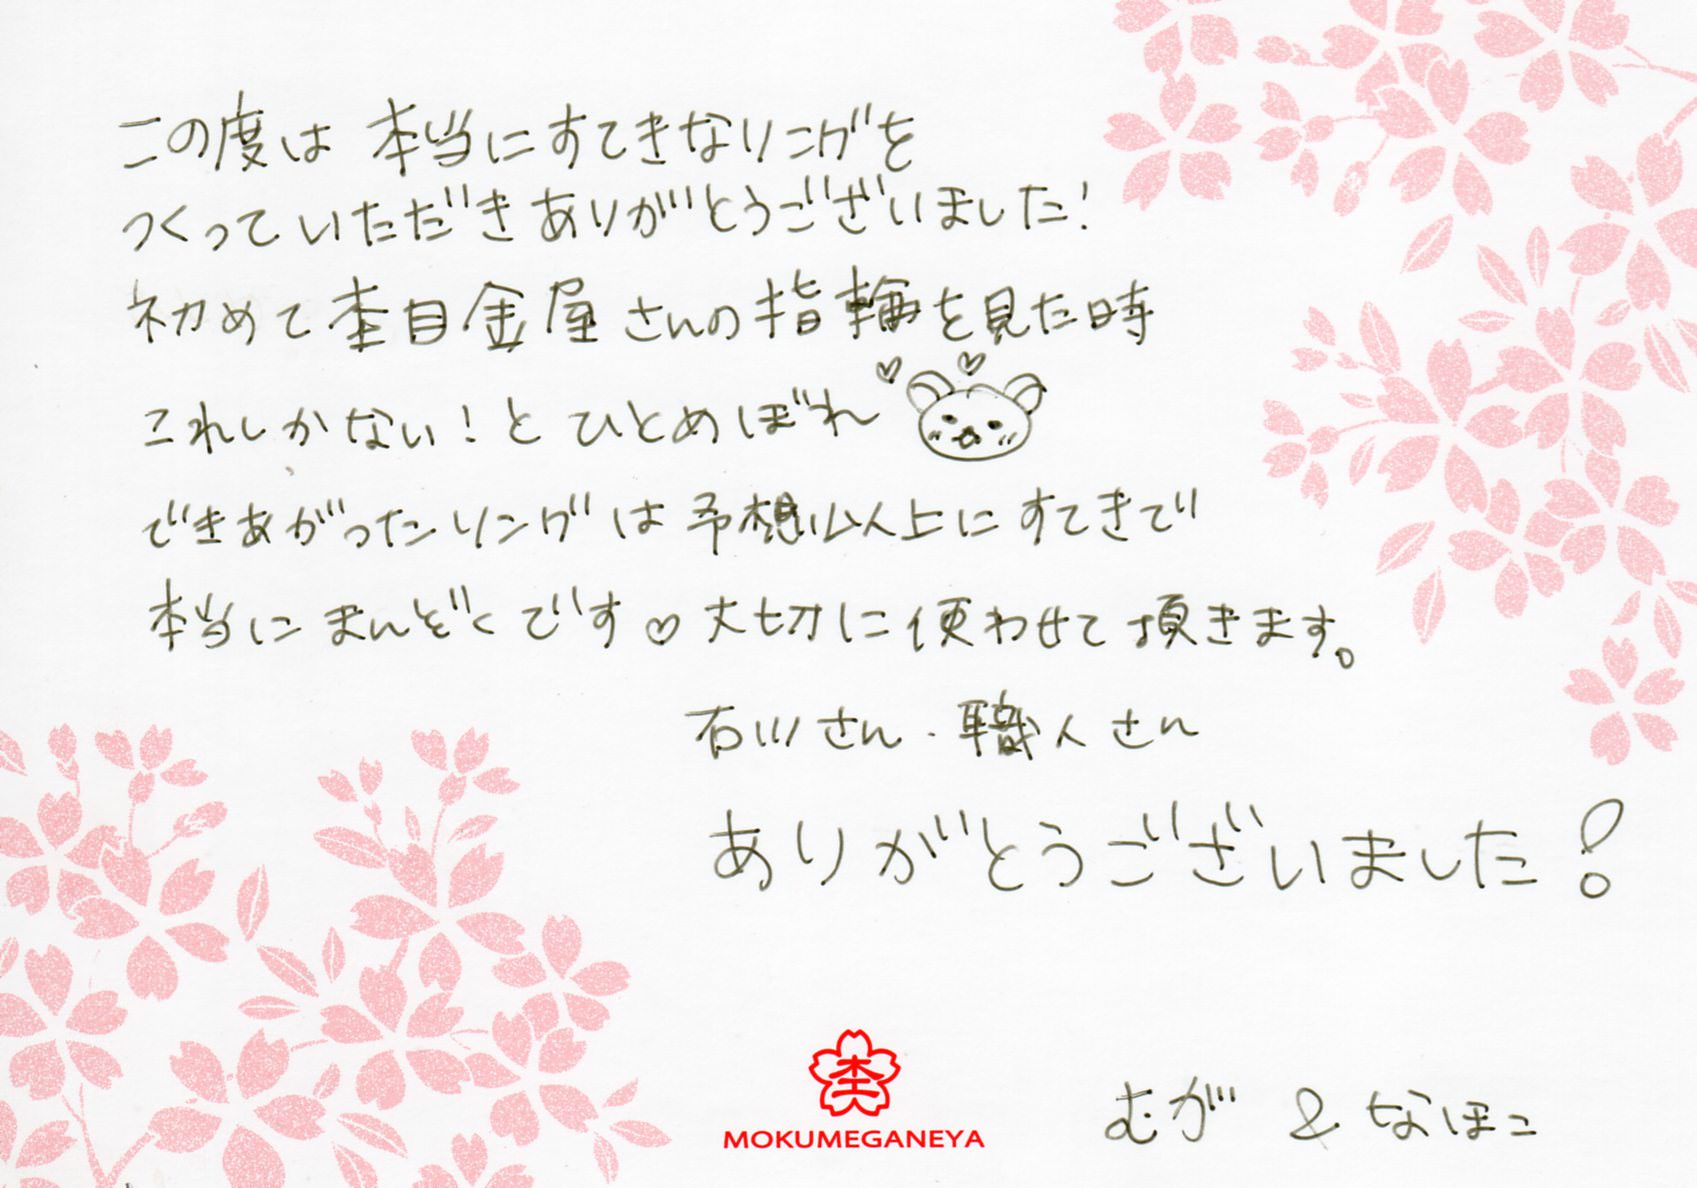 この度は 本当にすてきなリングを
つくっていただきありがとうございました！
初めて杢目金屋さんの指輪を見た時
これしかない！と ひとめぼれ
できあがったリングは予想以上にすてきで
本当にまんぞくです♡大切に使わせて頂きます。
石川さん・職人さん
ありがとうございました！
杢
MOKUMEGANEYA
むが & なほこ